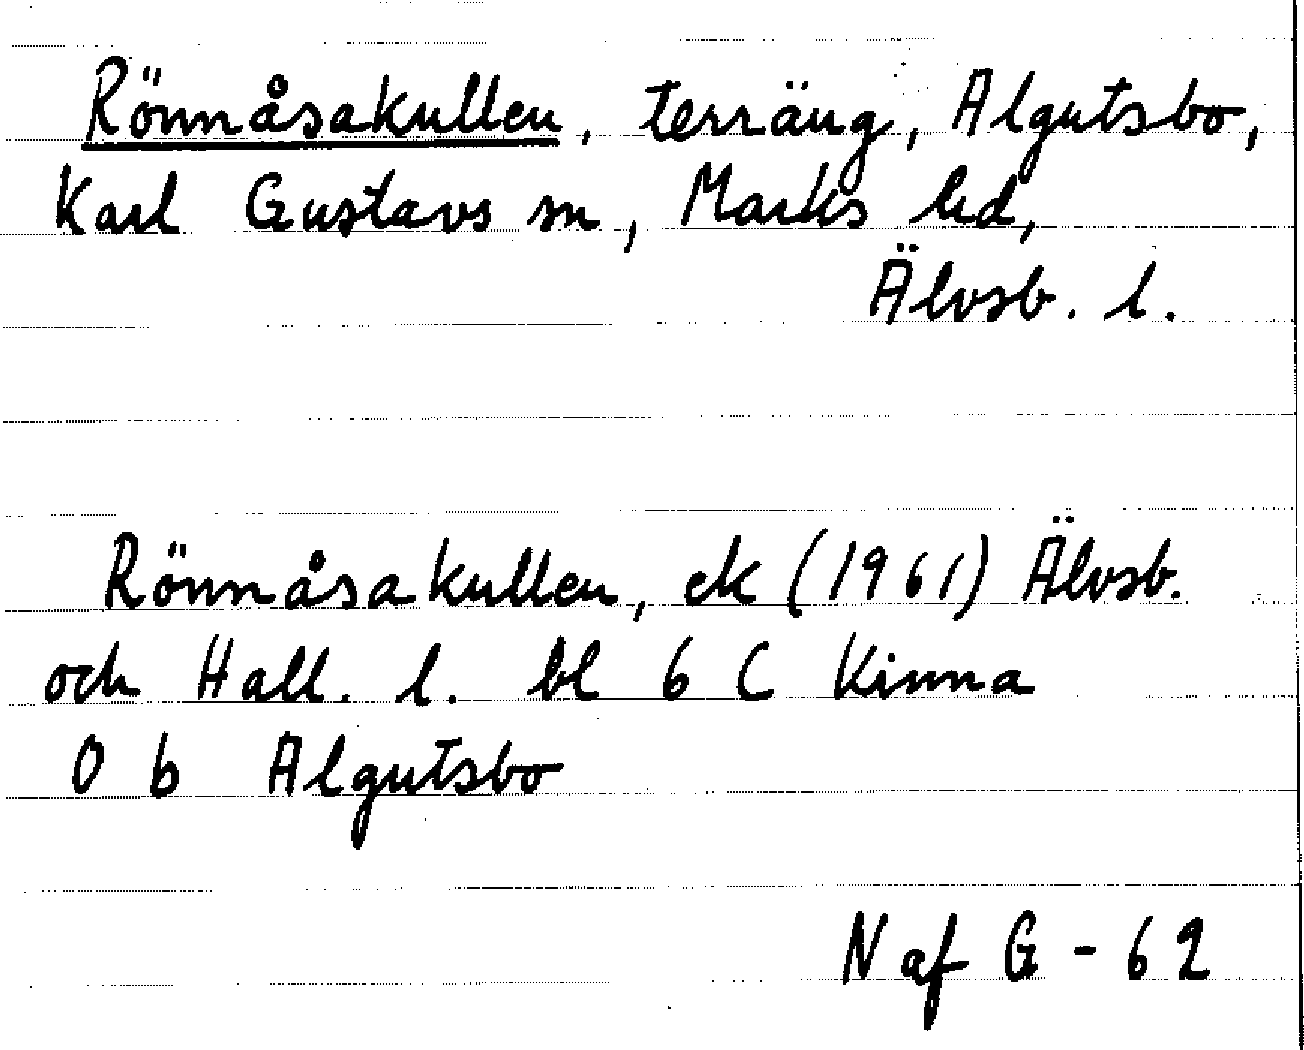 Rönnåsakullen, terräng, Algutsbo,
Karl Gustavs sn, Marks hd,
Älvsb. l.
Rönnåsakullen, ek (1961) Älvsb.
och Hall. l. bl 6 C Kinna
O b Algutsbo
N af G - 62